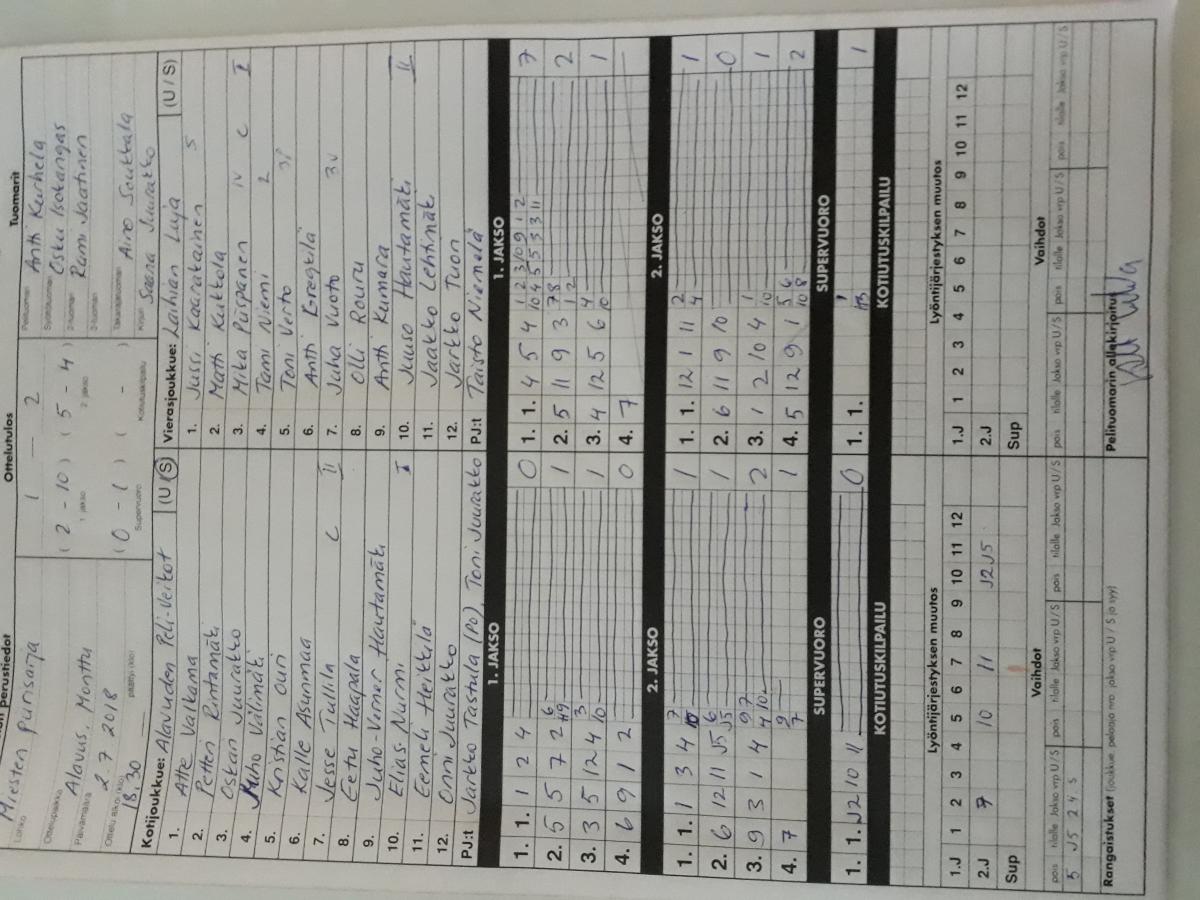 Ottelun perustiedot
Miesten Purisarja
Lohko
Ottelupaikka
Alavus, Monttu
Päivämäärä
2 7 2018
Ottelu alkoi (klo)
18.30
päättyi (klo)
Ottelutulos
1 — 2
( 2 - 10 ) ( 5 - 4 )
1 jakso 2 jakso
( 0 - 1 ) ( - )
Supervuoro Kotiutuskilpailu
Tuomarit
Pelituomari Antti Kurhela
Syöttötuomari Osku Isokangas
2-tuomari Rami Jaatinen
3-tuomari
Takarajatuomari Aino Soukkala
Kirjuri Saana Juuratko
Kotijoukkue: Alavuden Peli-Veikot (U / S)
1. Atte Valkama
2. Petteri Rintamäki
3. Oskari Juuratko
4. Juho Välimäki
5. Kristian Ouri
6. Kalle Asunmaa
7. Jesse Tullila C II
8. Eetu Haapala
9. Juho-Verner Hautamäki
10. Elias Nurmi I
11. Eemeli Heikkilä
12. Onni Juuratko
PJ:t Jarkko Tastula (PO), Toni Juuratko
Vierasjoukkue: Laihian Luja (U / S)
1. Jussi Kaarakainen 5
2. Matti Kukkola
3. Mika Piispanen IV C I
4. Tami Niemi 2
5. Toni Verto 3P
6. Antti Eregtilä
7. Juha Vuoto 3V
8. Olli Rouru
9. Antti Kumara
10. Juuso Hautamäki II
11. Jaakko Lehtimäki
12. Jarkko Tuon
PJ:t Taisto Niemelä
1. JAKSO
1. 1. 1 2 4 0
2. 5 5 7 2 1
3. 3 5 12 4 3 10 1
4. 6 9 1 2 0
1. JAKSO
1. 1. 4 5 4 7
2. 5 11 9 3 2
3. 4 12 5 6 4 10 1
4. 7
2. JAKSO
1. 1. 1 3 4 1
2. 6 12 11 J5 6 J5 1
3. 9 3 1 4 9 7 4 10 2
4. 7 9 7 1
2. JAKSO
1. 1. 12 1 11 2 4 1
2. 6 11 9 10 0
3. 1 2 10 4 1 10 1
4. 5 12 9 1 5 6 10 8 2
SUPERVUORO
1. 1. J2 10 11 0
SUPERVUORO
1. 1. 1
KOTIUTUSKILPAILU
KOTIUTUSKILPAILU
Lyöntijärjestyksen muutos
1.J 1 2 3 4 5 6 7 8 9 10 11 12
2.J 7 10 11 J2 J5
Sup
Lyöntijärjestyksen muutos
1.J 1 2 3 4 5 6 7 8 9 10 11 12
2.J
Sup
Vaihdot
pois tilalle Jakso vrp U / S pois tilalle Jakso vrp U / S pois tilalle Jakso vrp U / S
5 J5 2 4 S
Vaihdot
pois tilalle Jakso vrp U / S pois tilalle Jakso vrp U / S pois tilalle Jakso vrp U / S
Rangaistukset (joukkue pelaaja nro jakso vrp U / S ja syy)
Pelituomarin allekirjoitus